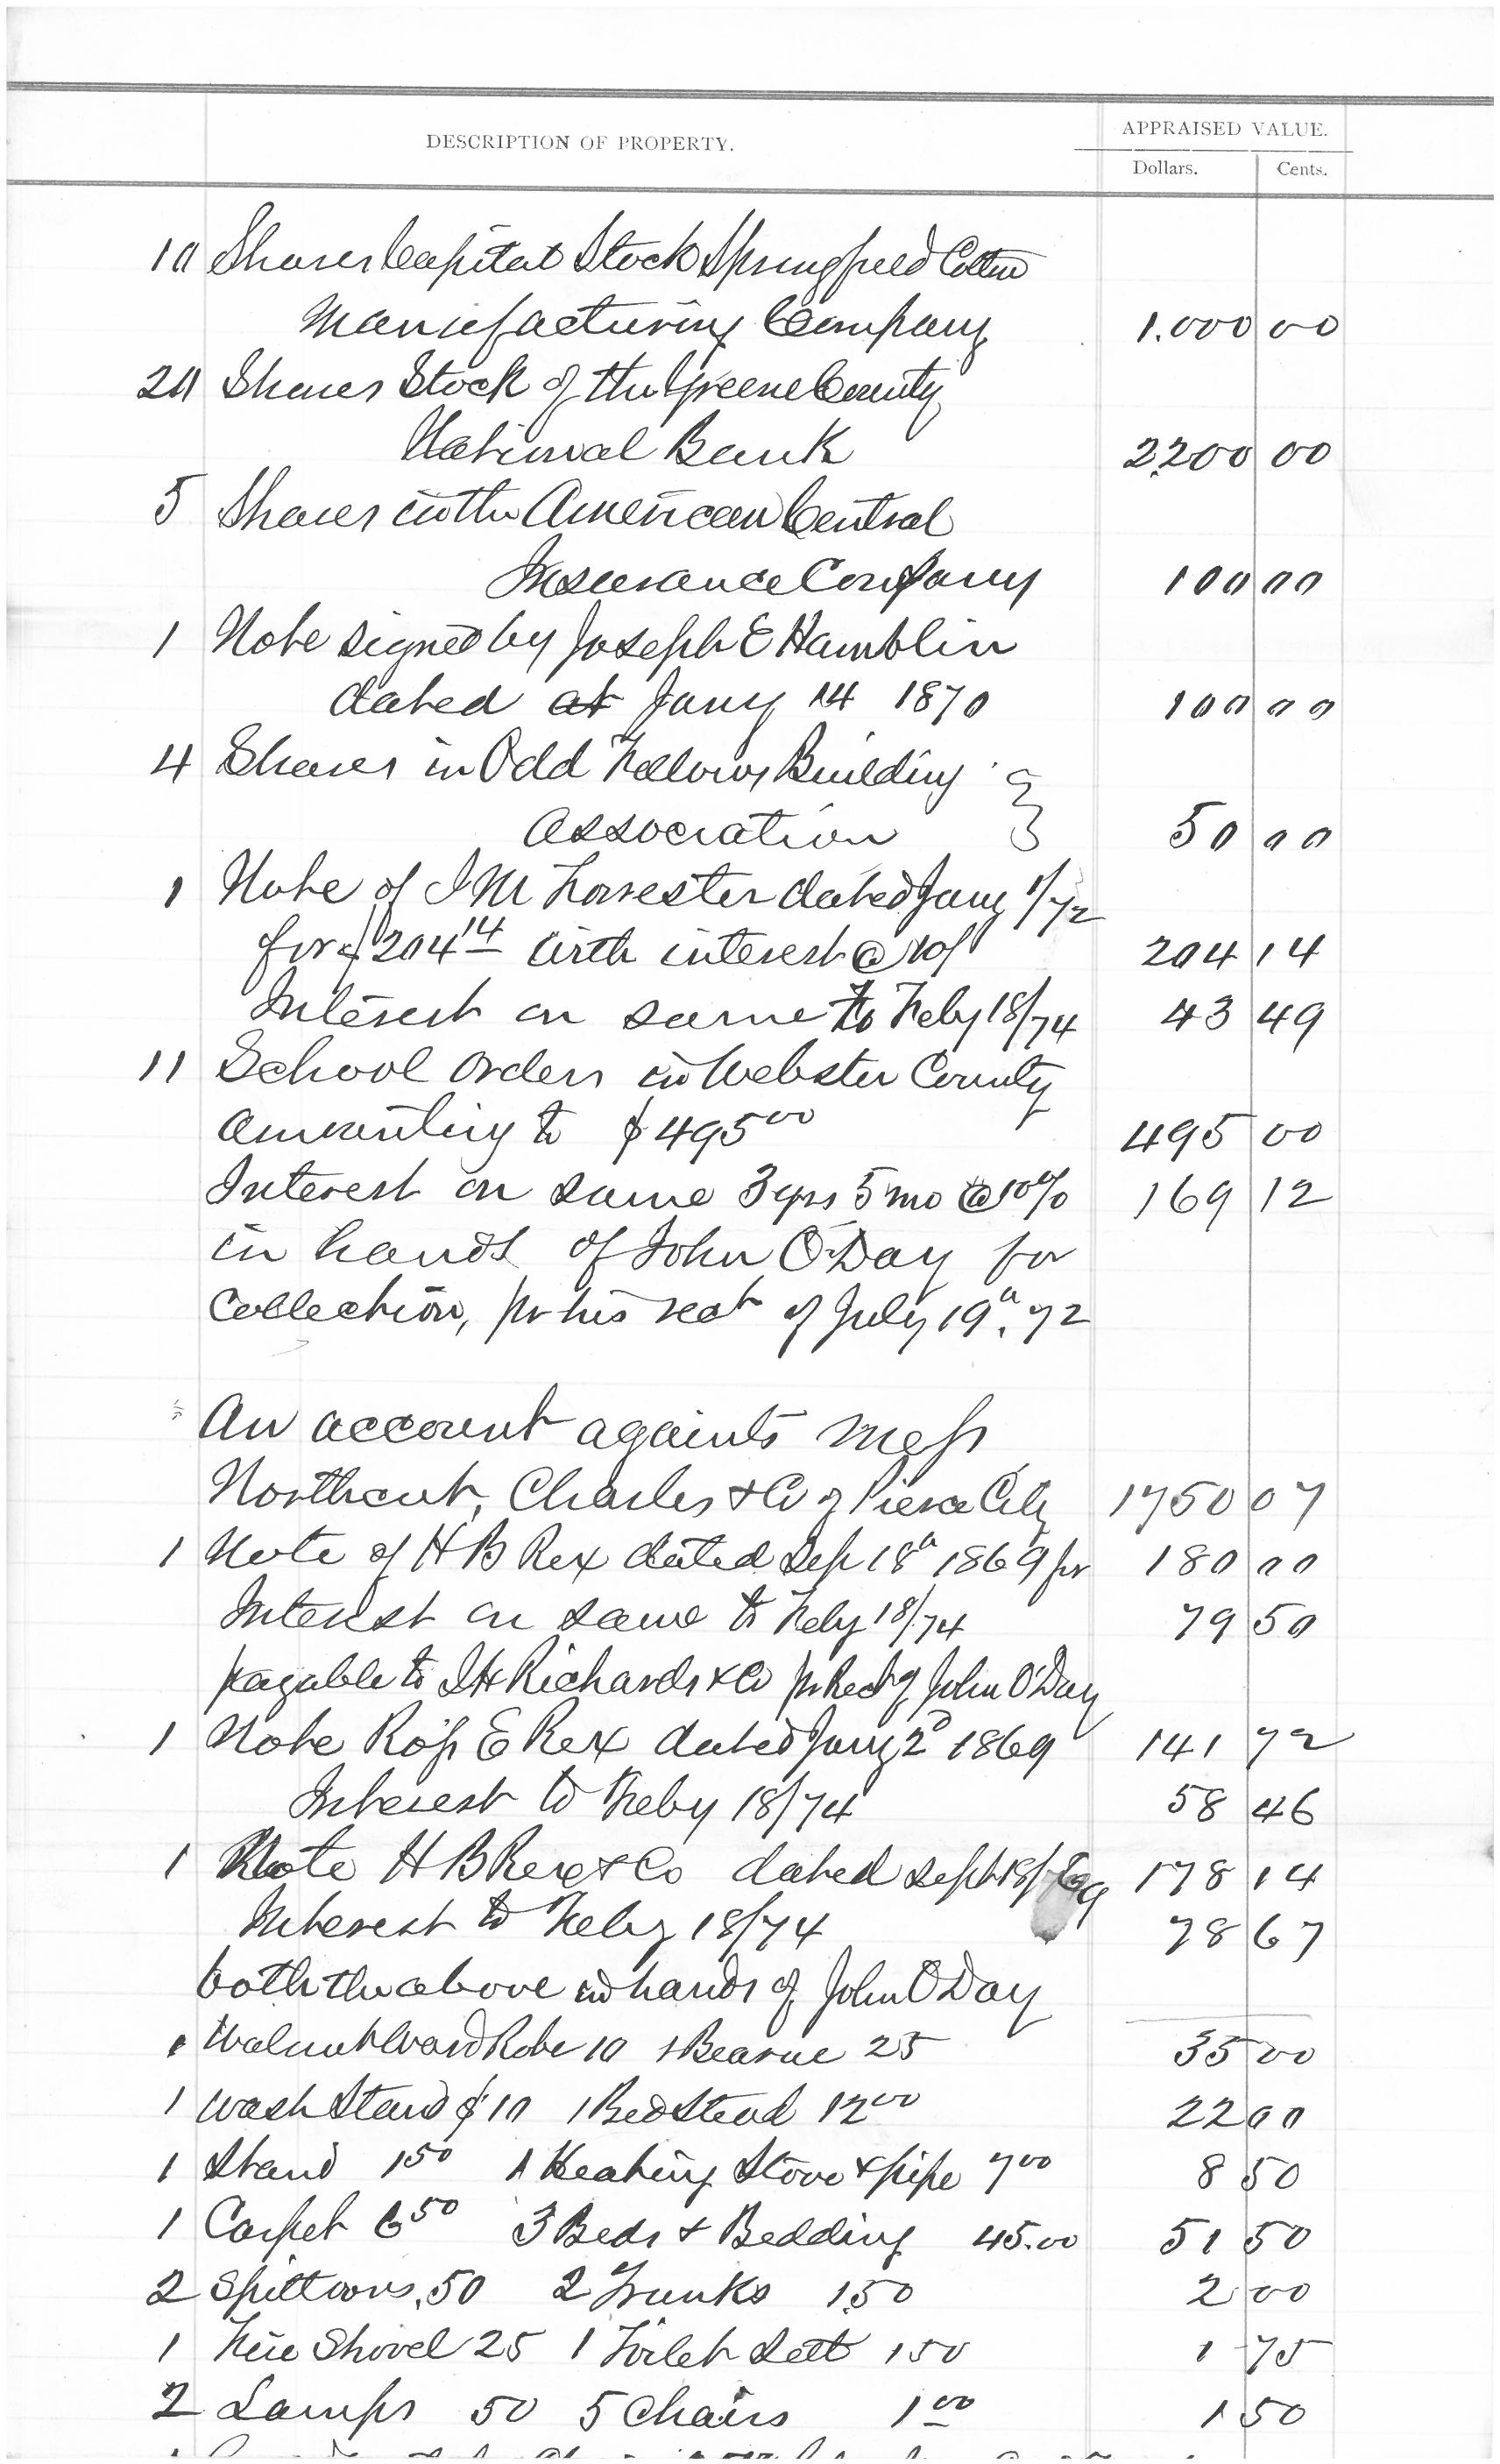 DESCRIPTION OF PROPERTY. APPRAISED VALUE.
Dollars. Cents.
10 Shares Capital Stock Springfield Cotten
Manufacturing Company 1.000 00
20 Shares Stock of the Greene County
National Bank 2200 00
5 Shares in the American Central
Insurance Company 100 00
1 Note signed by Joseph E Hamblin
dated at Jany 14 1870 100 00
4 Shares in Odd Fellows Building
Association 50 00
1 Note of J M Forrester dated Jany 1/72
for $204 14 with interest @ 10% 204 14
Interest on same to Feby 18/74 43 49
11 School orders in Webster County
amounting to $495 00 495 00
Interest on same 3 yrs 5 mo @ 10% 169 12
in hands of John O'Day for
Collection, pr his rect of July 19" 72
An account againts Mess
Northcut, Charles & Co of Pierce City 1750 07
1 Note of H B Rex dated Sep 18" 1869 for 180 00
Interest on same to Feby 18/74 79 50
payable to J H Richards & Co pr Rect of John O'Day
1 Note Ross E Rex dated Jany 2d 1869 141 72
Interest to Feby 18/74 58 46
1 Note H B Rex & Co dated Sept 18/69 178 14
Interest to Feby 18/74 78 67
both the above in hands of John O Day
1 Walnut WardRobe 10 1 25 35 00
1 Wash Stand $10 1 Bedstead 12 00 22 00
1 Stand 1 50 1 Heating Stove & pipe 7 00 8 50
1 Carpet 6 50 3 Beds & Bedding 45.00 51 50
2 Spittoons .50 2 Trunks 1.50 2 00
1 Fire Shovel 25 1 Toilet Sett 1 50 1 75
2 Lamps 50 5 Chairs 1 00 1 50